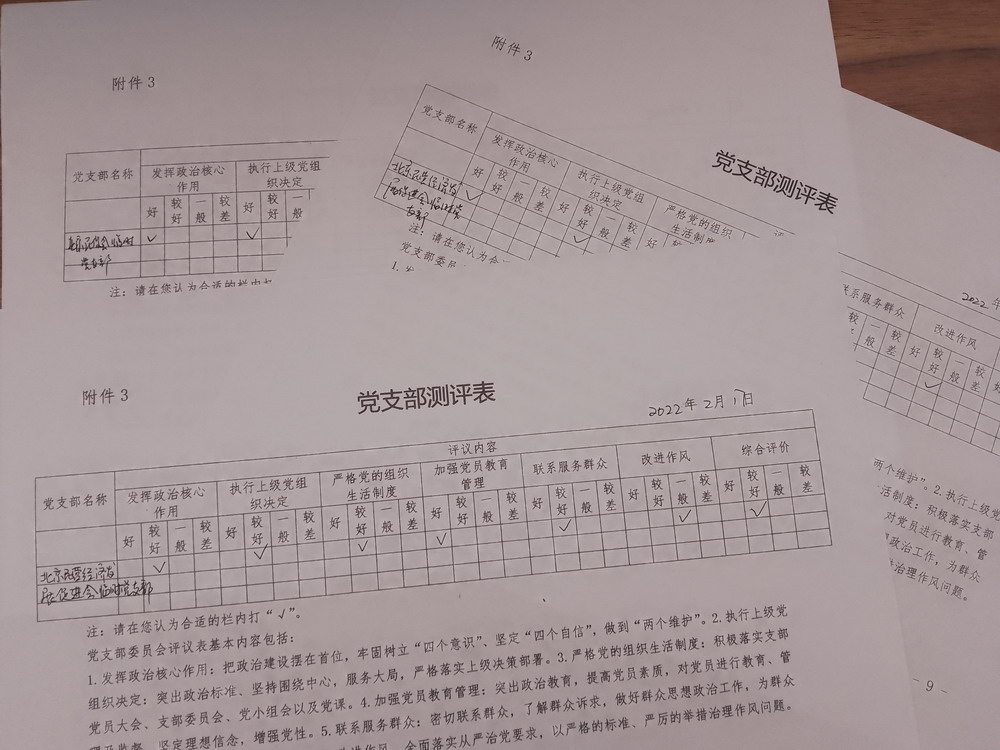 附件3
党支部名称
发挥政治核心
作用
执行上级党组
织决定
好 较好 一般 较差 好 较好 一般
党支部
注：请在您认为合适的栏内打
附件3
党支部测评表
党支部名称
发挥政治核心
作用
执行上级党组
织决定
严格党的组织
生活制度
好 较好 一般 较差 好 较好 一般 较差 好 较好
北京民营经济发
展促进会临时党
支部
注：请在您认为合
党支部委员
2022年
联系服务群众
改进作风
较好 一般 较差 好 较好 一般 较差 好
两个维护”。2.执行上级党
活制度：积极落实支部
对党员进行教育、管
政治工作，为群众
治理作风问题。
- 9 -
附件3
党支部测评表
2022年2月17日
党支部名称
评议内容
发挥政治核心
作用
执行上级党组
织决定
严格党的组织
生活制度
加强党员教育
管理
联系服务群众
改进作风
综合评价
好 较好 一般 较差 好 较好 一般 较差 好 较好 一般 较差 好 较好 一般 较差 好 较好 一般 较差 好 较好 一般 较差 好 较好 一般 较差
北京民营经济发
展促进会临时党支部
注：请在您认为合适的栏内打“√”。
党支部委员会评议表基本内容包括：
1.发挥政治核心作用：把政治建设摆在首位，牢固树立“四个意识”、坚定“四个自信”，做到“两个维护”。2.执行上级党
组织决定：突出政治标准、坚持围绕中心，服务大局，严格落实上级决策部署。3.严格党的组织生活制度：积极落实支部
党员大会、支部委员会、党小组会以及党课。4.加强党员教育管理：突出政治教育，提高党员素质，对党员进行教育、管
理及监督，坚定理想信念，增强党性。5.联系服务群众：密切联系群众，了解群众诉求，做好群众思想政治工作，为群众
改进作风，全面落实从严治党要求，以严格的标准、严厉的举措治理作风问题。